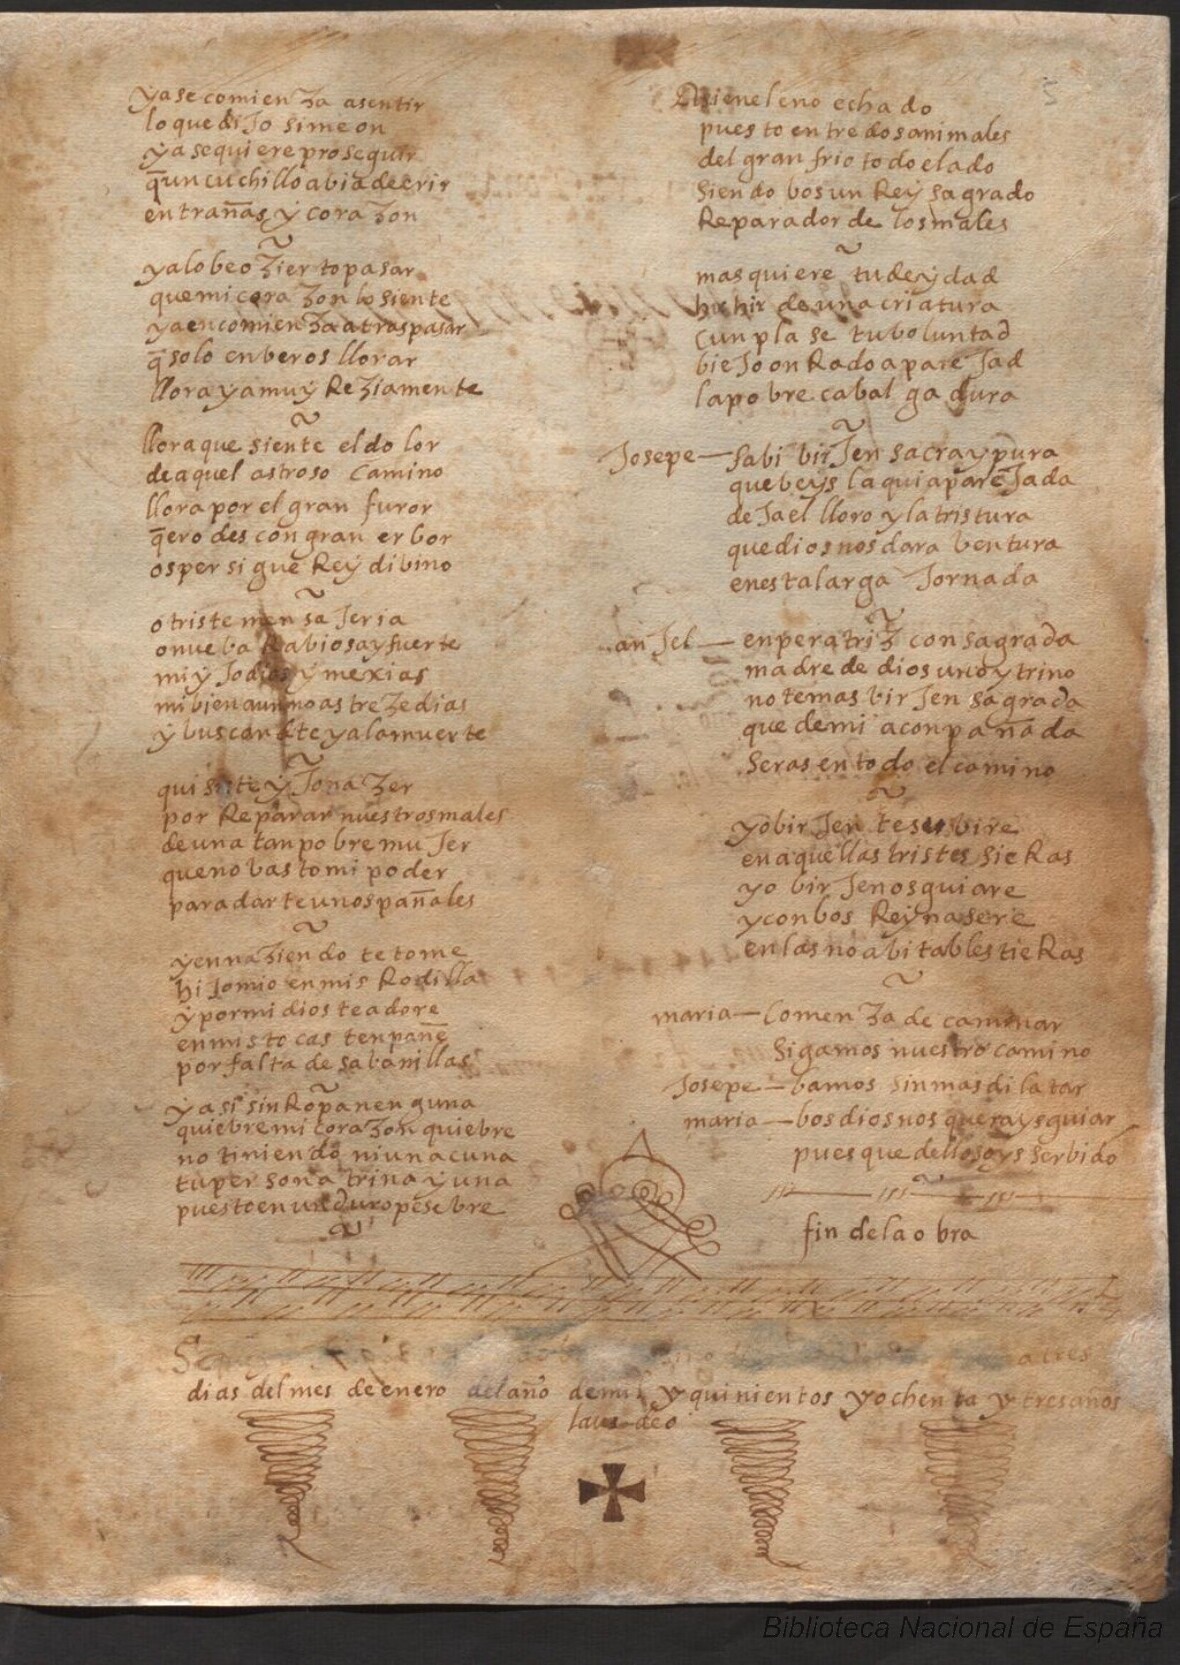 ya se comienza asentir
lo que dijo simeon
ya se quiere proseguir
q̃ un cuchillo abia de erir
entrañas y corazon
ya lo beo zierto pasar
que mi corazon lo siente
ya en comienza a traspasar
q̃ solo en beros llorar
llora ya muy Reziamente
llora que siente el dolor
de aquel astroso camino
llora por el gran furor
q̃ erodes con gran erbor
os persigue Rey dibino
o triste mensajeria
o nueba Rabiosa y fuerte
mi y Jodios y mexias
mi bien aun no as treze dias
y buscante ya la muerte
quisiste yJo nazer
por Reparar nuestros males
de una tan pobre muJer
que no basto mi poder
para darte unos pañales
y en naziendo te tome
hiJo mio en mis Rodilla
y por mi dios te adore
en mis tocas tenpañe
por falta de sabanillas
y asi sin Ropa nenguna
quiebre mi corazon quiebre
no tiniendo ni una cuna
tu persona trina y una
puesto en un duro pesebre
5
en el eno echado
puesto entre dos animales
del gran frio todo elado
siendo bos un Rey sagrado
Reparador de los males
mas quiere tu deydad
huhir de una criatura
cunplase tu boluntad
bieJo onRado apareJad
la pobre cabalgadura
Josepe — sabi birJen sacra y pura
que beys laqui apareJada
deJa el lloro y la tristura
que dios nos dara bentura
en esta larga Jornada
anJel — enperatriz consagrada
madre de dios uno y trino
no temas birJen sagrada
que de mi aconpañada
seras en todo el camino
yo birJen te serbire
en aquellas tristes sieRas
yo birJen os guiare
y con bos Reyna sere
en las no abitables tieRas
maria — Comenza de caminar
sigamos nuestro camino
Josepe — bamos sin mas dilatar
maria — bos dios nos querays guiar
pues que dello soys serbido
fin de la obra
a tres
dias del mes de enero del año de mil y quinientos y ochenta y tres años
laus deo
Biblioteca Nacional de España